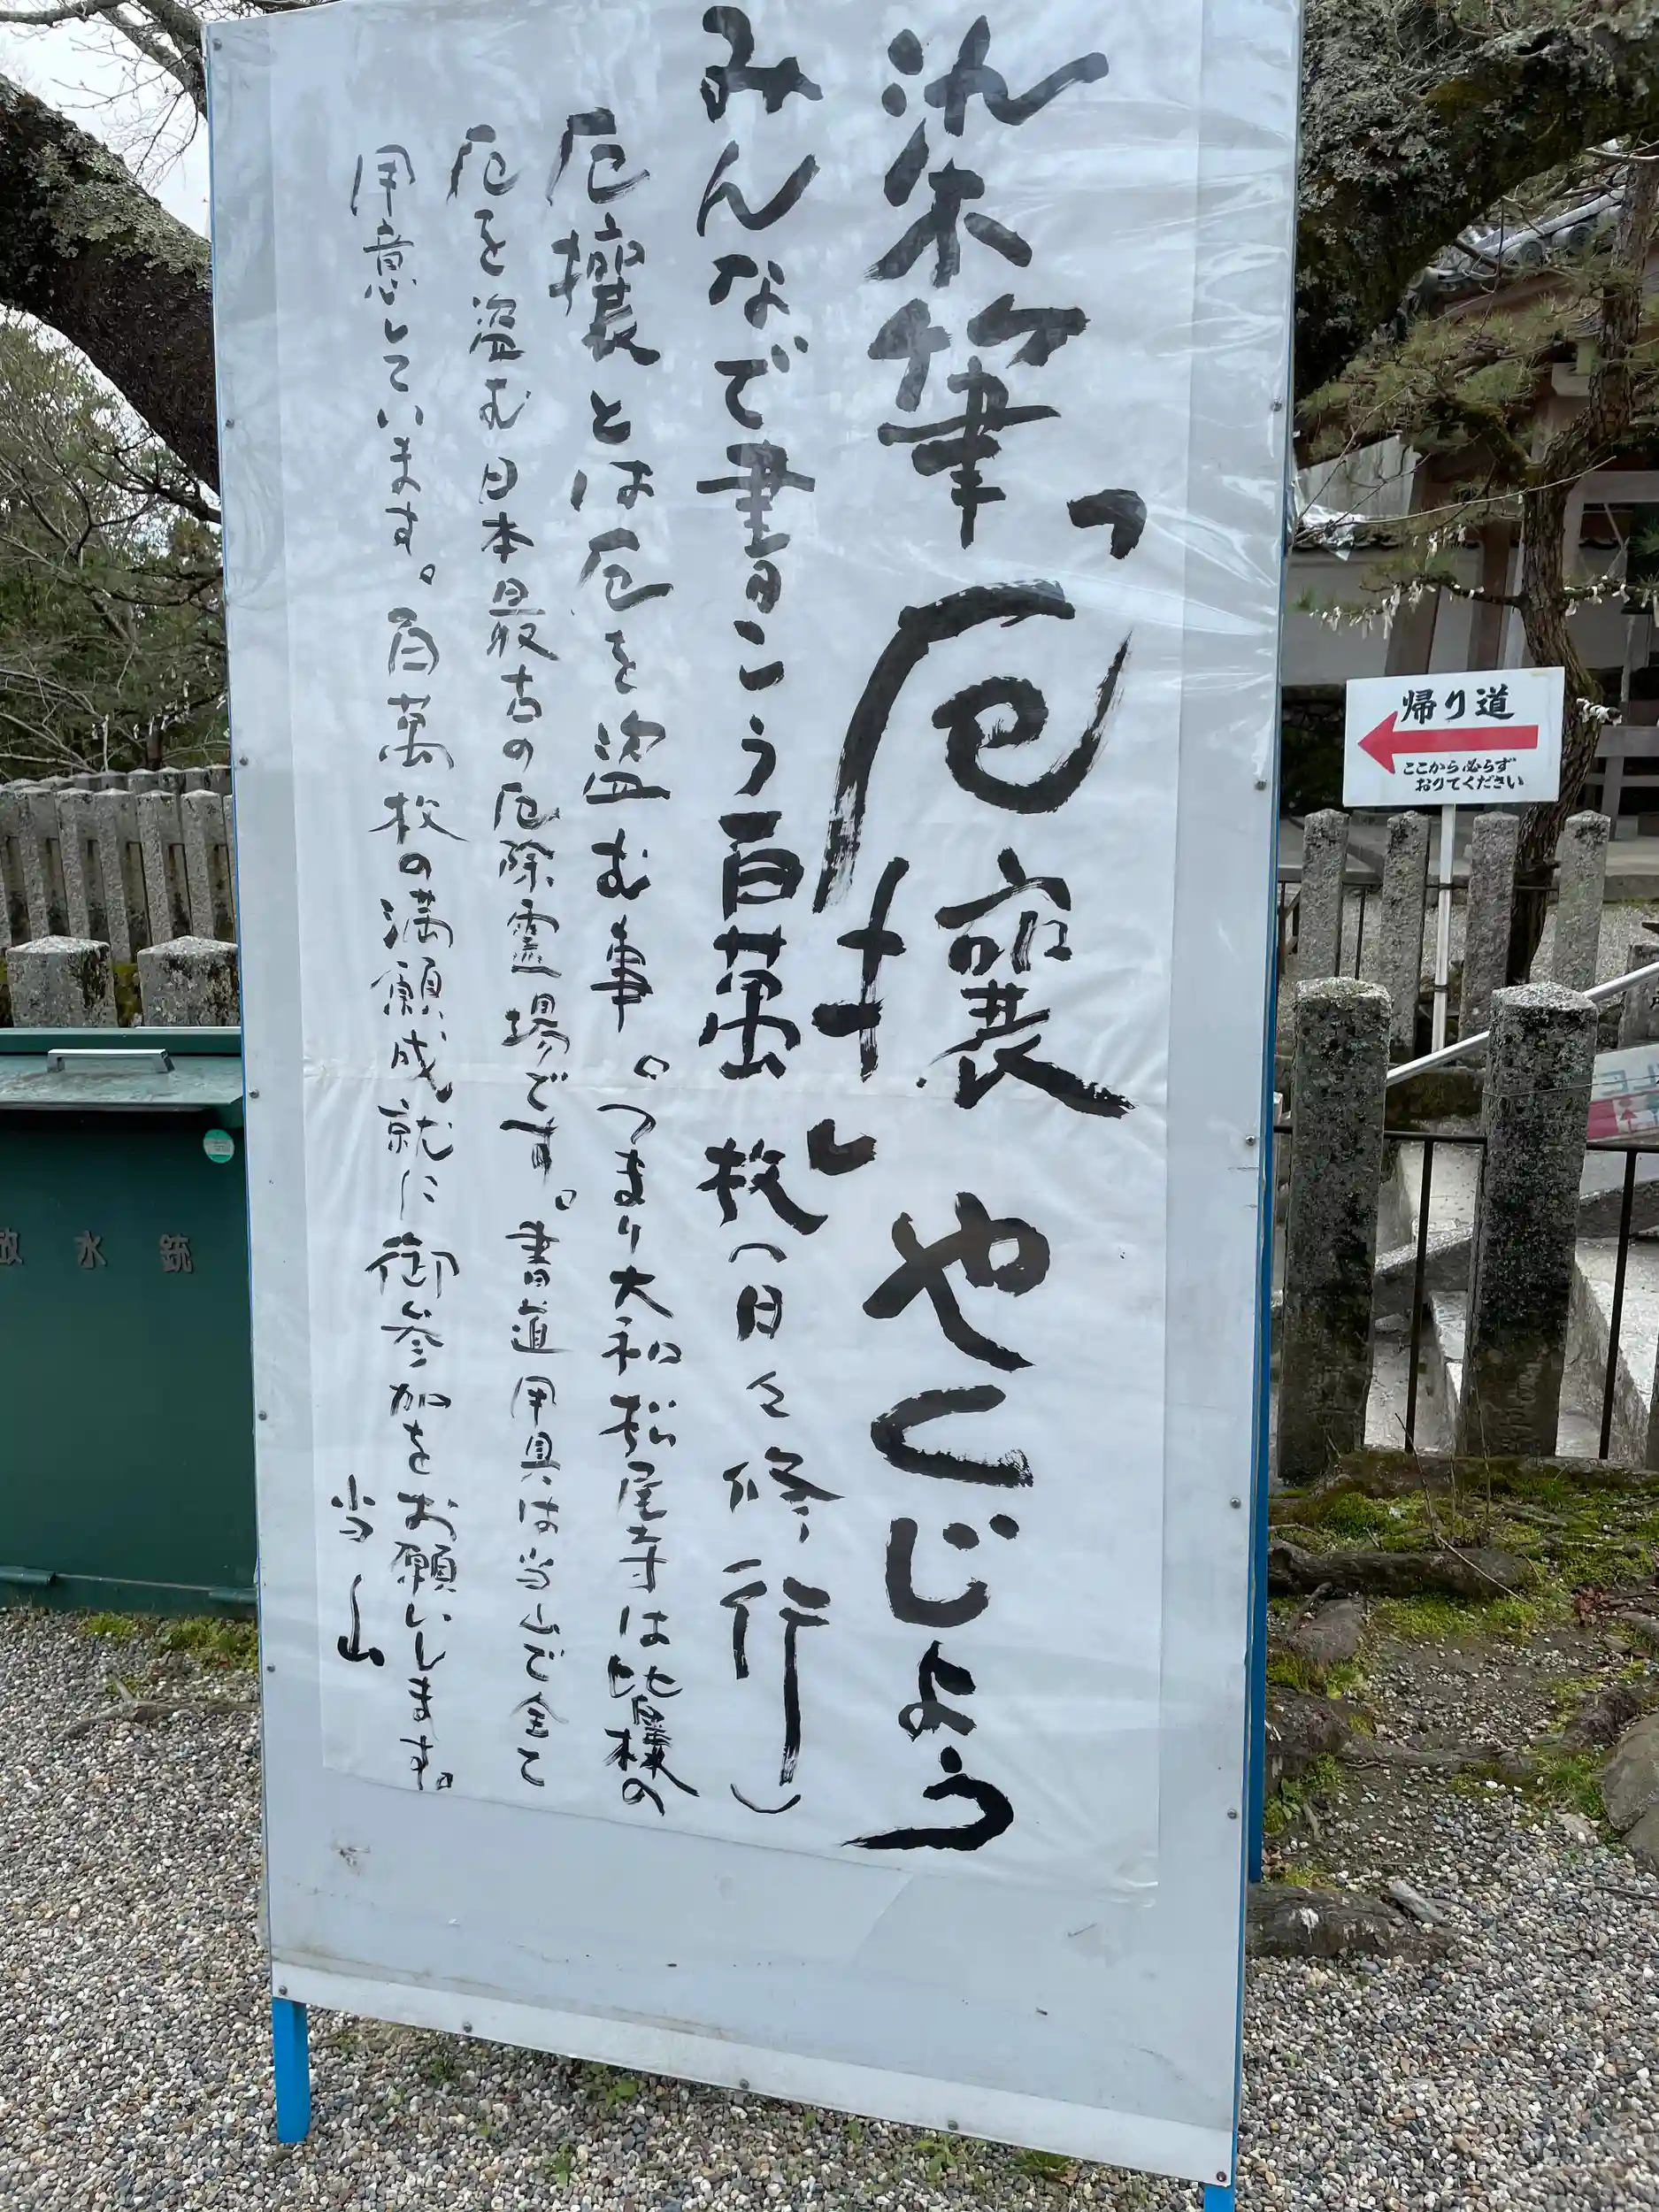 染筆「厄攘」やくじょう
みんなで書こう百萬枚(日々修行)
厄攘とは厄を盗む事。つまり大和松尾寺は皆様の
厄を盗む日本最古の厄除霊場です。書道用具は当山で全て
用意しています。百萬枚の満願成就に御参加をお願いします。
当山
帰り道
ここから必らず
おりてください
放水銃